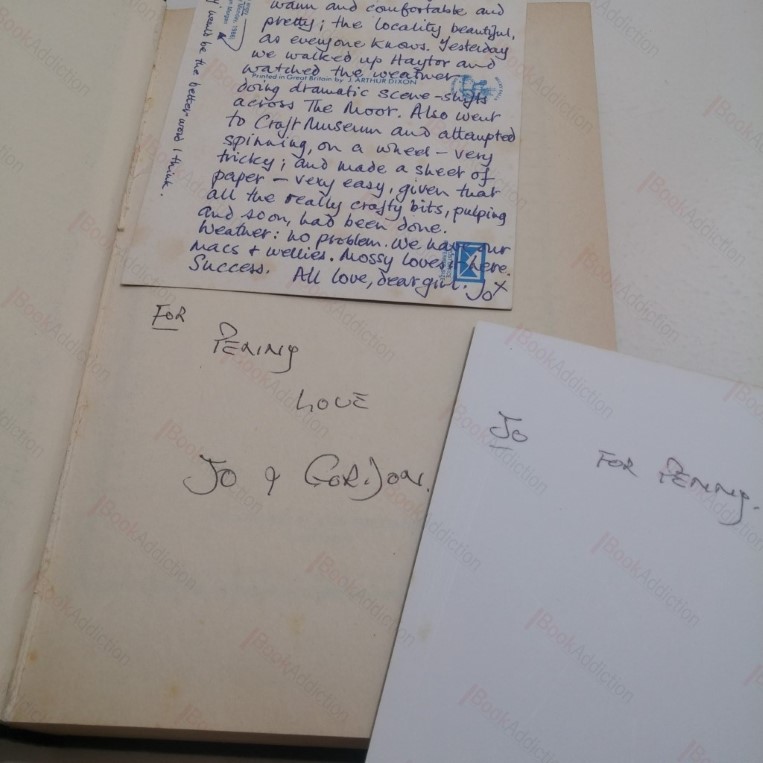 warm and comfortable and
pretty; the locality beautiful,
as everyone knows. Yesterday
we walked up Haytor and
watched the weather
Printed in Great Britain by J. ARTHUR DIXON
doing dramatic scene-shifts
across The Moor. Also went
to Craft Museum and attempted
spinning, on a wheel - very
tricky; and made a sheet of
paper - very easy, given that
all the really crafty bits, pulping
and so on, had been done.
Weather: no problem. We have our
macs & wellies. Mossy loves it here.
Success. All love, dear girl. Jo x
would be the better word I think.
FOR
PENNY
LOVE
JO & GORDON.
JO FOR PENNY.
BookAddiction